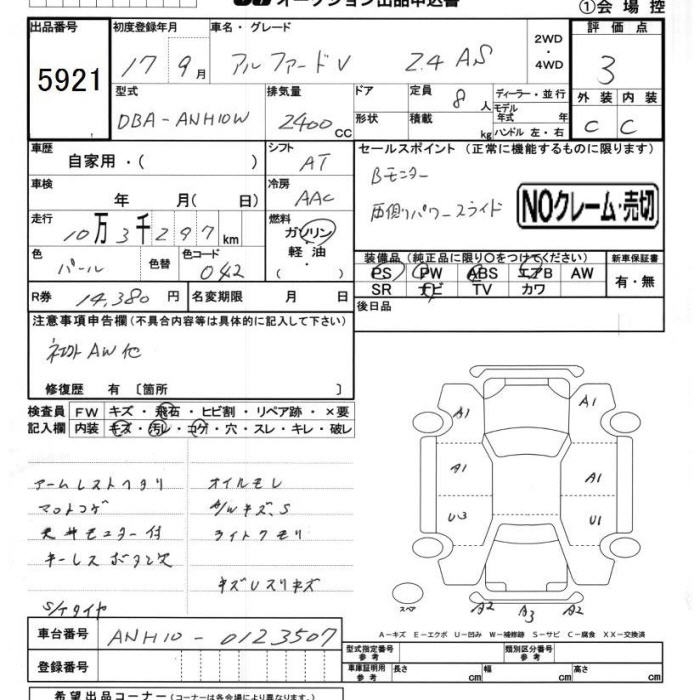 オークション出品申込書 ①会場控
出品番号 初度登録年月 車名・グレード 2WD・4WD 評価点
5921 17 9月 アルファードV 2.4 AS 3
型式 排気量 ドア 定員 8人 ディーラー・並行 外装 内装
DBA-ANH10W 2400CC 形状 積載 kg モデル年式 年 ハンドル 左・右 C C
車歴 シフト セールスポイント (正常に機能するものに限ります)
自家用・( ) AT Bモニター
車検 年 月( 日) 冷房 AAC 両側パワースライド NOクレーム・売切
走行 10万3千297km 燃料 ガソリン・軽油・( )
色 パール 色替 色コード 042 装備品 (純正品に限り○をつけてください) 新車保証書
PS PW ABS エアB AW 有・無
SR ナビ TV カワ
R券 14,380円 名変期限 月 日 後日品
注意事項申告欄(不具合内容等は具体的に記入して下さい)
社外AW他
修復歴 有 〔箇所 〕
検査員 FW キズ・飛石・ヒビ割・リペア跡・×要
記入欄 内装 キズ・汚レ・コゲ・穴・スレ・キレ・破レ
アームレストヘタリ オイルモレ
マットコゲ A/Wキズ、S
天井モニター付 ライトクモリ
キーレスボタン欠
キズUスリキズ
S/Tタイヤ
A1 A1
A1 A1
U3 U1
スペア A2 A3 A2
A-キズ E-エクボ U-凹み W-補修跡 S-サビ C-腐食 XX-交換済
車台番号 ANH10-0123507
型式指定番号参考 類別区分番号参考
登録番号 車庫証明用参考 長さ cm 幅 cm 高さ cm
希望出品コーナー (コーナーは各会場により異なります)